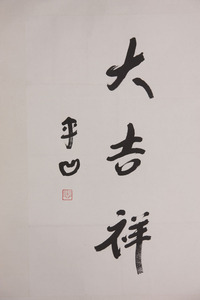 大吉祥
平凹